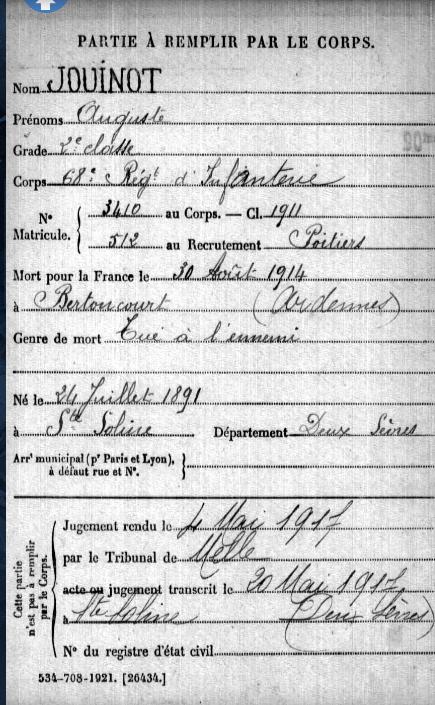 PARTIE À REMPLIR PAR LE CORPS.
Nom JOUINOT
Prénoms Auguste
Grade 2e classe
Corps 68e Régt d'Infanterie
No Matricule. { 3410 au Corps. — Cl. 1911
512 au Recrutement Poitiers
Mort pour la France le 30 Août 1914
à Bertoncourt (Ardennes)
Genre de mort Tué à l'ennemi
Né le 24 Juillet 1891
à Ste Soline Département Deux Sèvres
Arrt municipal (pr Paris et Lyon), à défaut rue et No. }
Cette partie n'est pas à remplir par le Corps.
Jugement rendu le 4 Mai 1917
par le Tribunal de Melle
acte ou jugement transcrit le 20 Mai 1917
à Ste Soline (Deux Sèvres)
No du registre d'état civil
534-708-1921. [26434.]